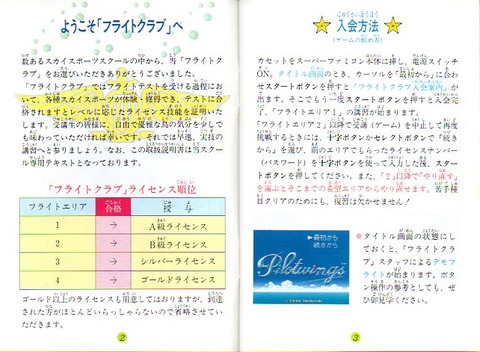 ようこそ「フライトクラブ」へ
数あるスカイスポーツスクールの中から、当「フライトク
ラブ」をお選びいただきありがとうございました。
「フライトクラブ」ではフライトテストを受ける過程にお
いて、各種スカイスポーツが体験・修得でき、テストに合
格されますとレベルに応じたライセンスと技能を証明いた
します。受講生の皆様に、自由で優雅な鳥の気分を少しで
も味わっていただければ幸いです。それでは早速、実技の
講習へと参りましょう。なお、この取扱説明書は当スクー
ル専用テキストとなっております。
「フライトクラブ」ライセンス順位
フライトエリア 合格 授与
1 → A級ライセンス
2 → B級ライセンス
3 → シルバーライセンス
4 → ゴールドライセンス
ゴールド以上のライセンスも用意してはおりますが、到達
された方がほとんどいらっしゃらないので省略させてい
ただきます。
2
入会方法
(ゲームの始め方)
カセットをスーパーファミコン本体に挿し、電源スイッチ
ON。タイトル画面のとき、カーソルを「最初から」に合わ
せスタートボタンを押すと「フライトクラブ入会案内」が
出ます。そこでもう一度スタートボタンを押すと入会完
了。「フライトエリア1」の講習が始まります。
「フライトエリア2」以降で受講(ゲーム)を中止して再度
挑戦するときには、十字ボタンかセレクトボタンで「続き
から」を選び、前のエリアでもらったライセンスナンバー
(パスワード)を十字ボタンを使って入力した後、スター
トボタンを押してください。また、「2」以降で「やり直す」
を選ぶとそこまでの希望エリアからやり直せます。苦手種
目クリアのためにも、復習は欠かせません!
▶最初から
続きから
Pilotwings
※タイトル画面の状態にし
ておくと、「フライトクラ
ブ」スタッフによるデモフ
ライトが始まります。ボタ
ン操作の参考としても、ぜ
ひ御見学ください。
3